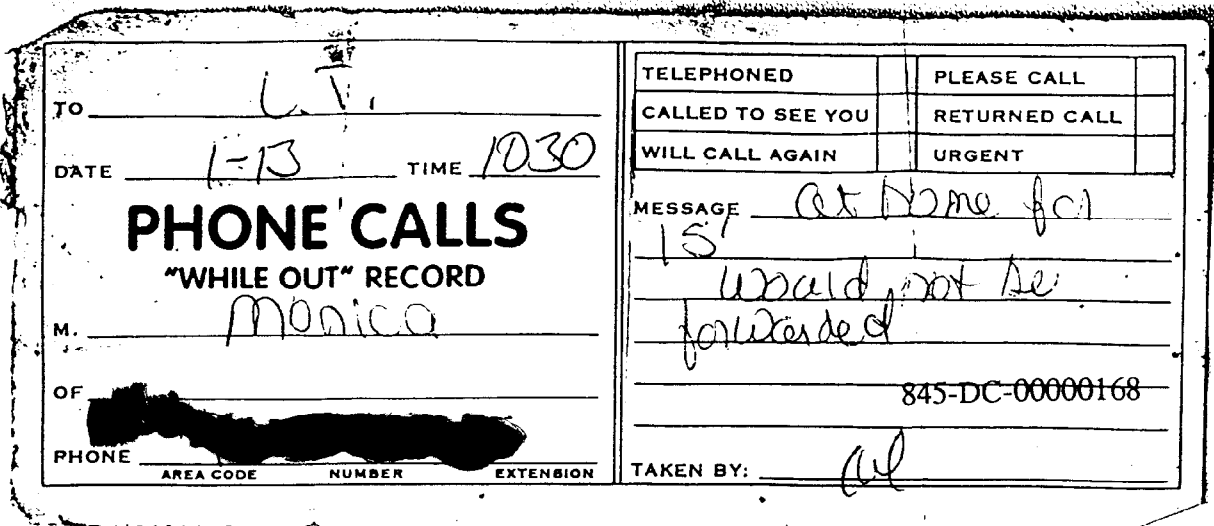 TO L.T.
DATE 1-13 TIME 1030
PHONE CALLS
"WHILE OUT" RECORD
M. Monica
OF
PHONE
AREA CODE NUMBER EXTENSION
TELEPHONED PLEASE CALL
CALLED TO SEE YOU RETURNED CALL
WILL CALL AGAIN URGENT
MESSAGE at Home for
15'
would not be
forwarded
845-DC-00000168
TAKEN BY: